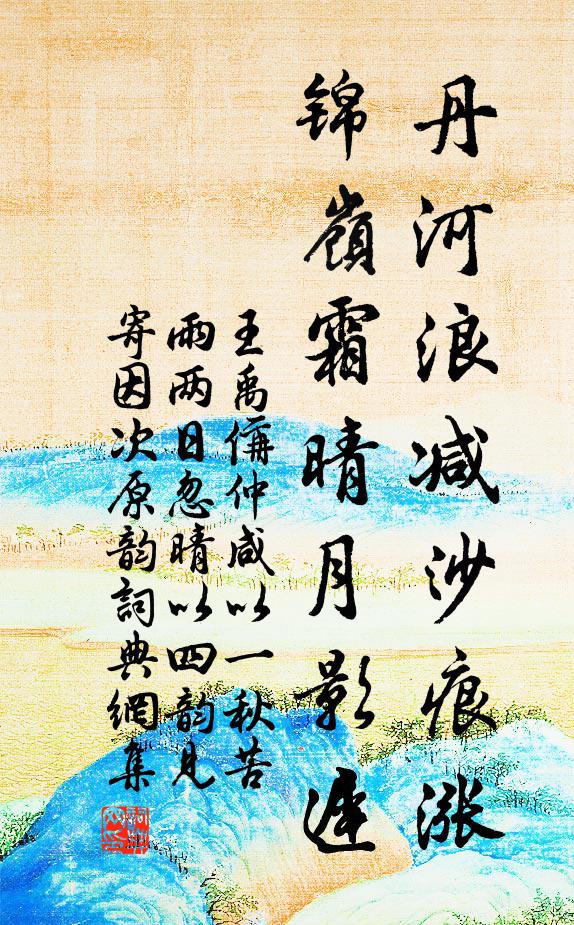 丹河浪减沙痕涨
锦嶺霜晴月影遲
王禹偁仲咸以一秋苦
雨两日忽晴以四韵见
寄因次原韵詞典網集